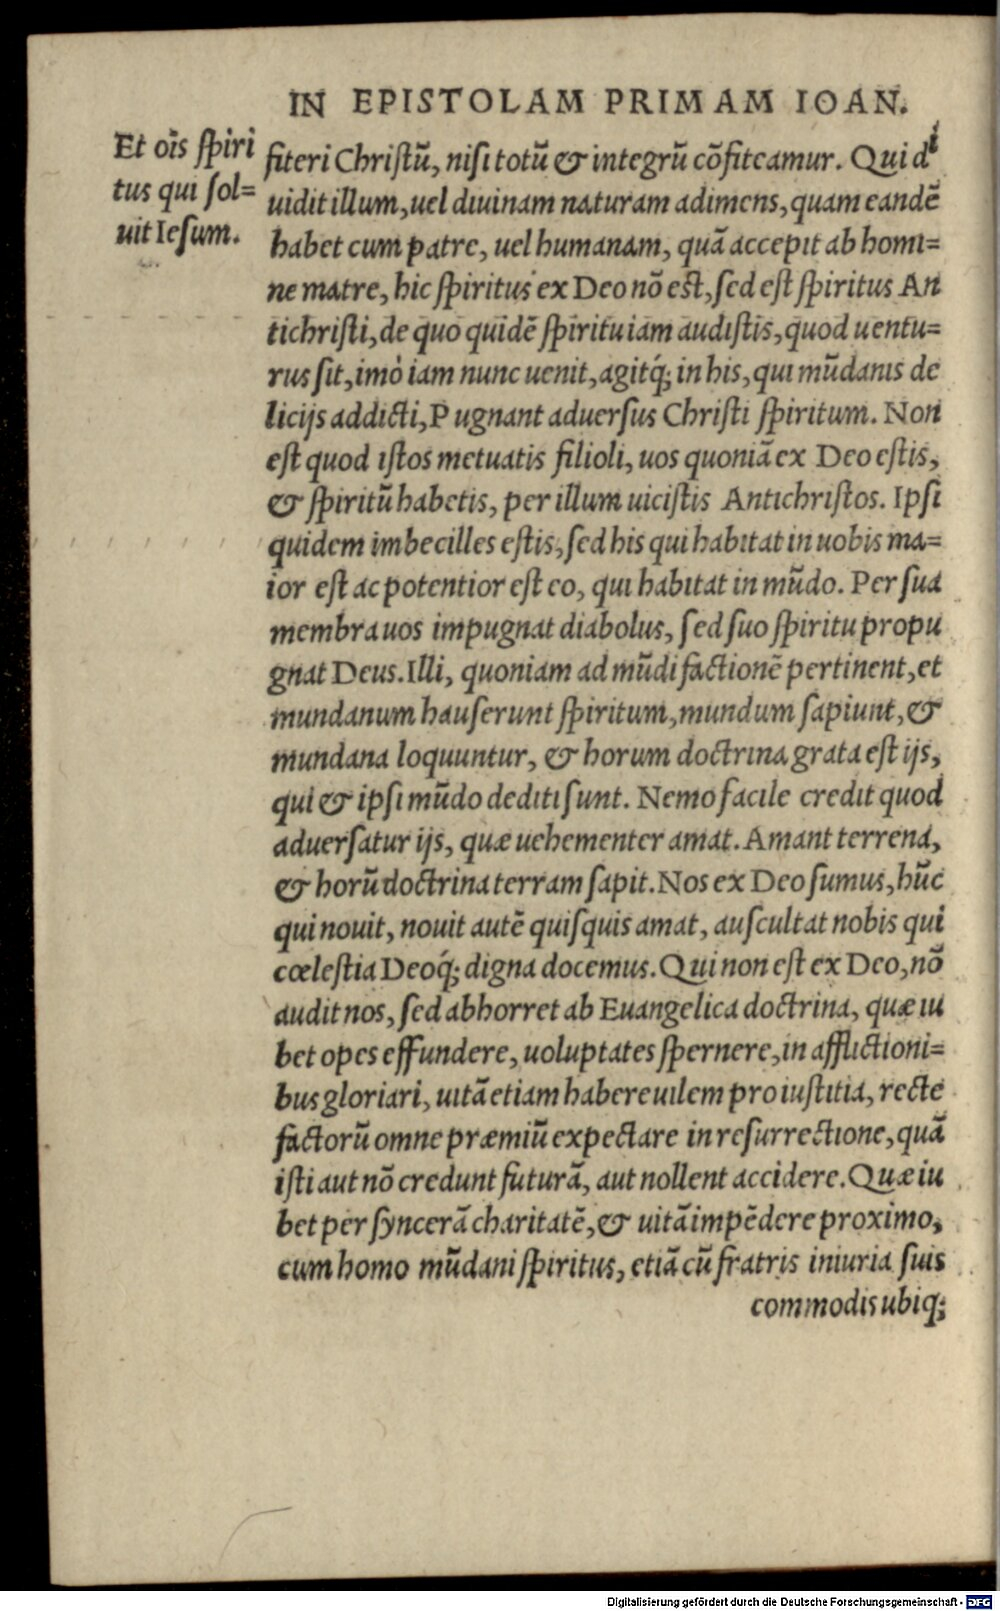 IN EPISTOLAM PRIMAM IOAN.
Et oīs ſpiri
tus qui ſol=
uit Ieſum.
fiteri Chriſtū, niſi totū & integrū cōfiteamur. Qui di
uidit illum, uel diuinam naturam adimens, quam eandē
habet cum patre, uel humanam, quā accepit ab homi=
ne matre, hic ſpiritus ex Deo nō eſt, ſed eſt ſpiritus An
tichriſti, de quo quidē ſpiritu iam audiſtis, quod uentu=
rus ſit, imò iam nunc uenit, agitq́; in his, qui mūdanis de
licijs addicti, Pugnant aduerſus Chriſti ſpiritum. Non
eſt quod iſtos metuatis filioli, uos quoniā ex Deo eſtis,
& ſpiritū habetis, per illum uiciſtis Antichriſtos. Ipſi
quidem imbecilles eſtis, ſed his qui habitat in uobis ma=
ior eſt ac potentior eſt eo, qui habitat in mūdo. Per ſua
membra uos impugnat diabolus, ſed ſuo ſpiritu propu
gnat Deus. Illi, quoniam ad mūdi factionē pertinent, et
mundanum hauſerunt ſpiritum, mundum ſapiunt, &
mundana loquuntur, & horum doctrina grata eſt ijs,
qui & ipſi mūdo dediti ſunt. Nemo facile credit quod
aduerſatur ijs, quæ uehementer amat. Amant terrena,
& horū doctrina terram ſapit. Nos ex Deo ſumus, hūc
qui nouit, nouit autē quiſquis amat, auſcultat nobis qui
cœleſtia Deoq́; digna docemus. Qui non eſt ex Deo, nō
audit nos, ſed abhorret ab Euangelica doctrina, quæ iu
bet opes effundere, uoluptates ſpernere, in afflictioni=
bus gloriari, uitā etiam habere uilem pro iuſtitia, recte
factorū omne præmiū expectare in reſurrectione, quā
iſti aut nō credunt futurā, aut nollent accidere. Quæ iu
bet per ſyncerā charitatē, & uitā impēdere proximo,
cum homo mūdani ſpiritus, etiā cū fratris iniuria ſuis
commodis ubiq;
Digitalisierung gefördert durch die Deutsche Forschungsgemeinschaft - DFG